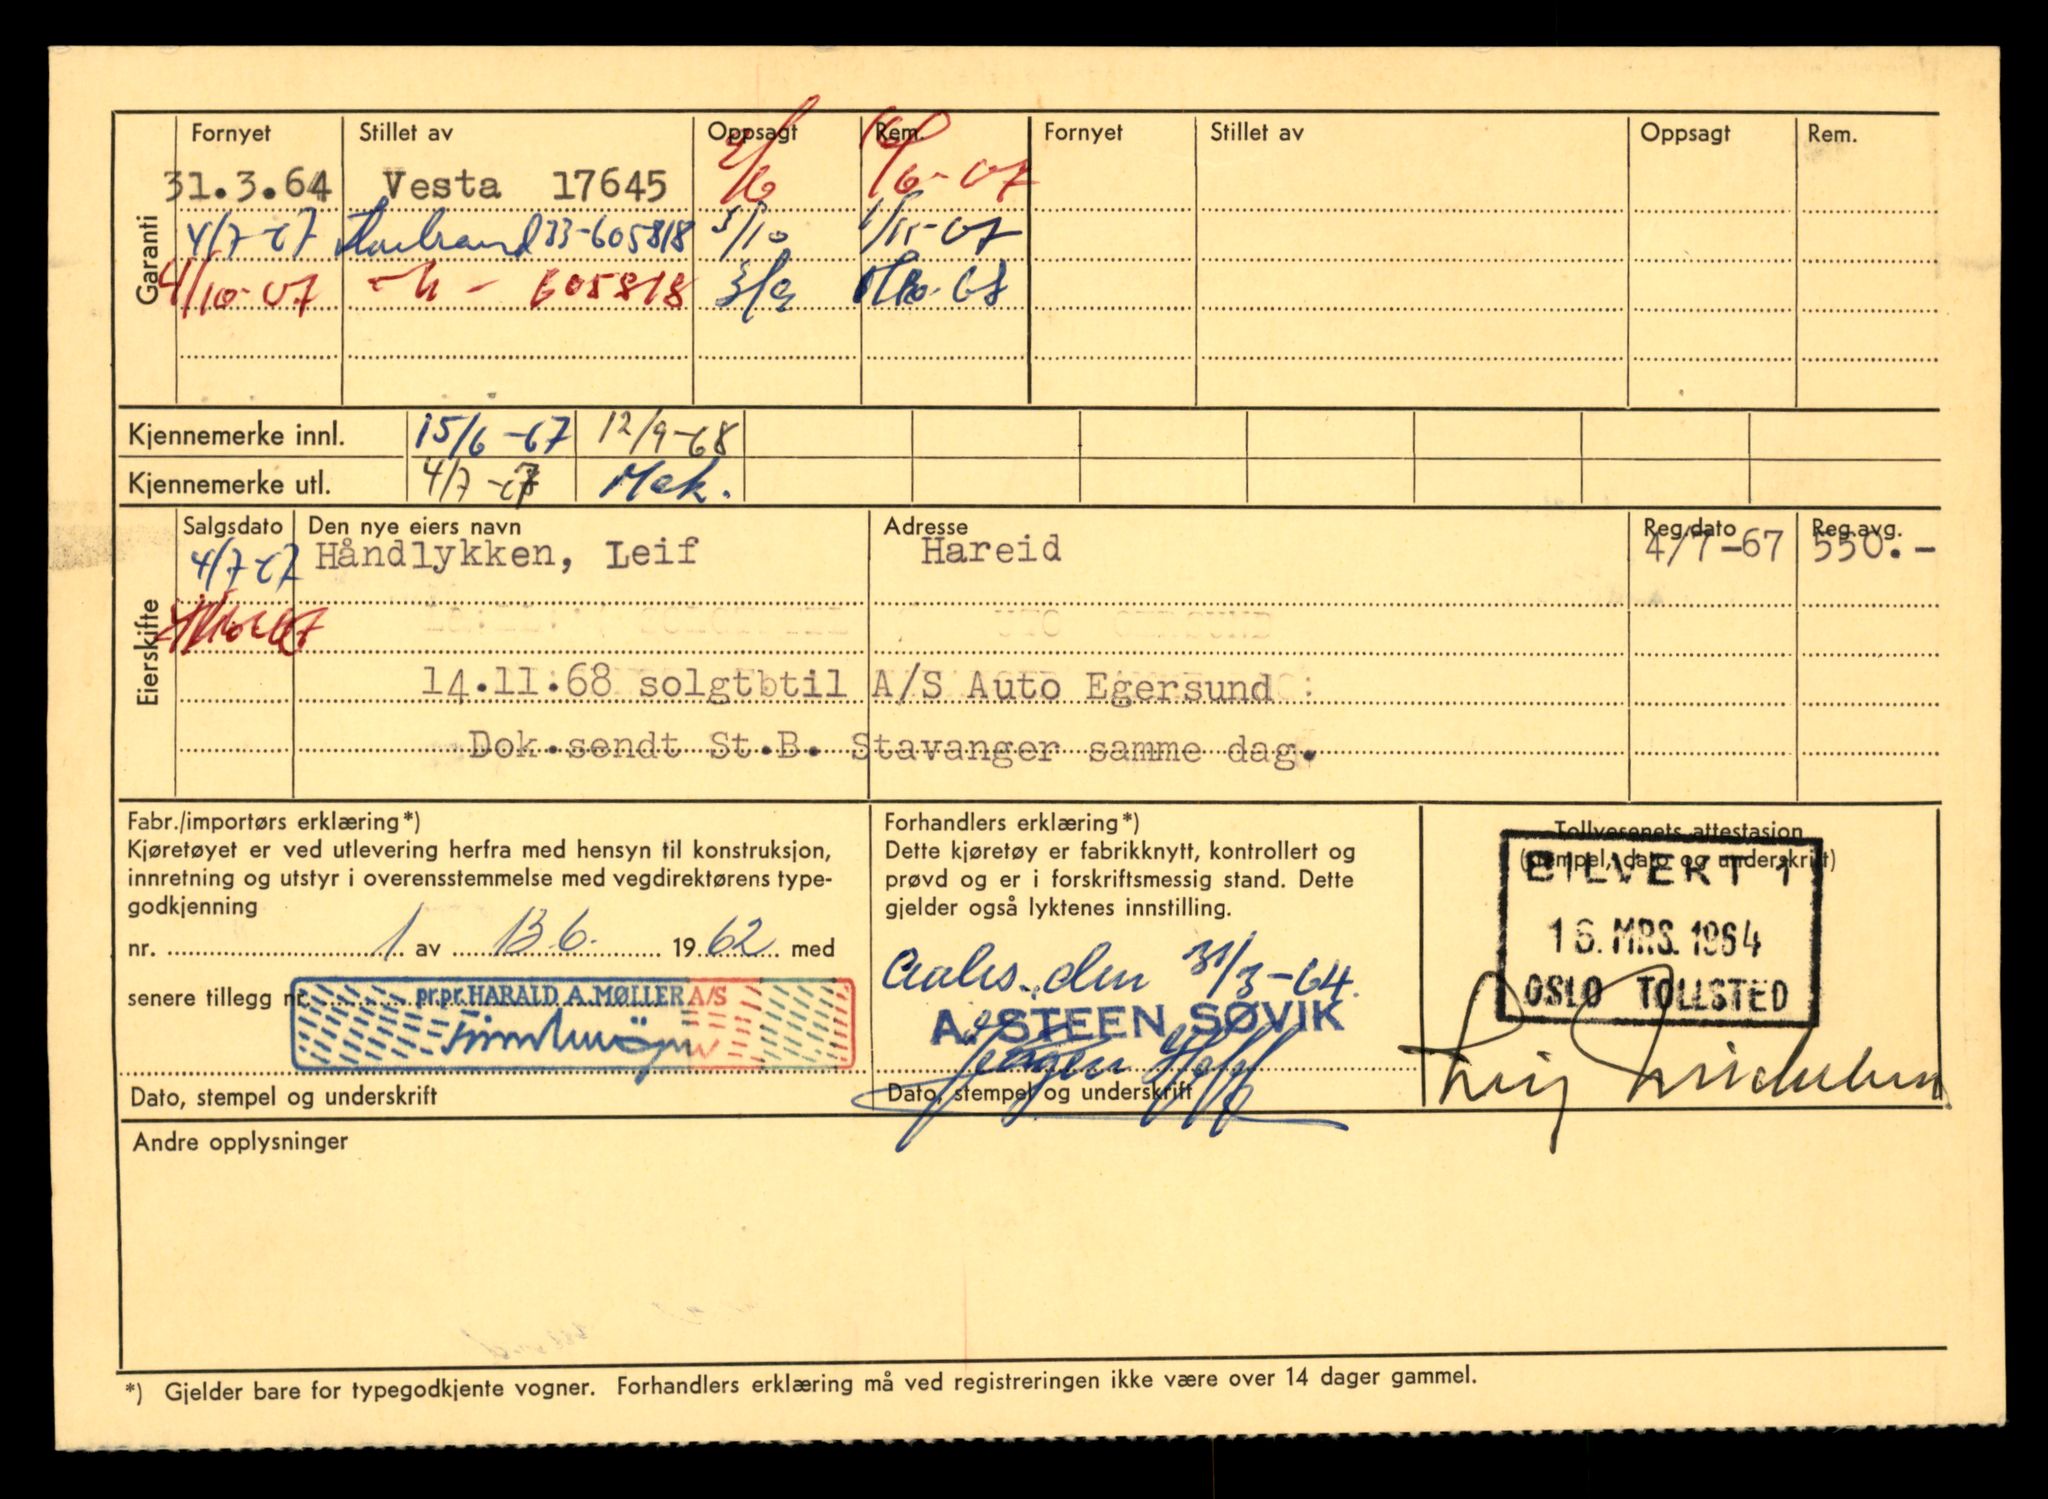 Garanti
Fornyet Stillet av Oppsagt Rem. Fornyet Stillet av Oppsagt Rem.
31.3.64 Vesta 17645 2/6 /6-67
4/7-67 33-605818 5/10 67
4/10-67 -"- 605818 3/9 68
Kjennemerke innl. 15/6-67 12/9-68
Kjennemerke utl. 4/7-67 Mek.
Eierskifte
Salgsdato Den nye eiers navn Adresse Reg.dato Reg.avg.
4/7-67 Håndlykken, Leif Hareid 4/7-67 550.-
14.11.68 solgtbtil A/S Auto Egersund
Dok.sendt St.B. Stavanger samme dag.
Fabr./importørs erklæring*)
Kjøretøyet er ved utlevering herfra med hensyn til konstruksjon,
innretning og utstyr i overensstemmelse med vegdirektørens type-
godkjenning
nr. 1 av 13.6. 1962 med
senere tillegg nr.
pr.pr. HARALD A. MØLLER A/S
Dato, stempel og underskrift
Forhandlers erklæring*)
Dette kjøretøy er fabrikknytt, kontrollert og
prøvd og er i forskriftsmessig stand. Dette
gjelder også lyktenes innstilling.
den 31/3-64.
A. STEEN SØVIK
Dato, stempel og underskrift
Tollvesenets attestasjon
(stempel, dato og underskrift)
BILVERT 1
16. MRS. 1964
OSLO TOLLSTED
Andre opplysninger
*) Gjelder bare for typegodkjente vogner. Forhandlers erklæring må ved registreringen ikke være over 14 dager gammel.